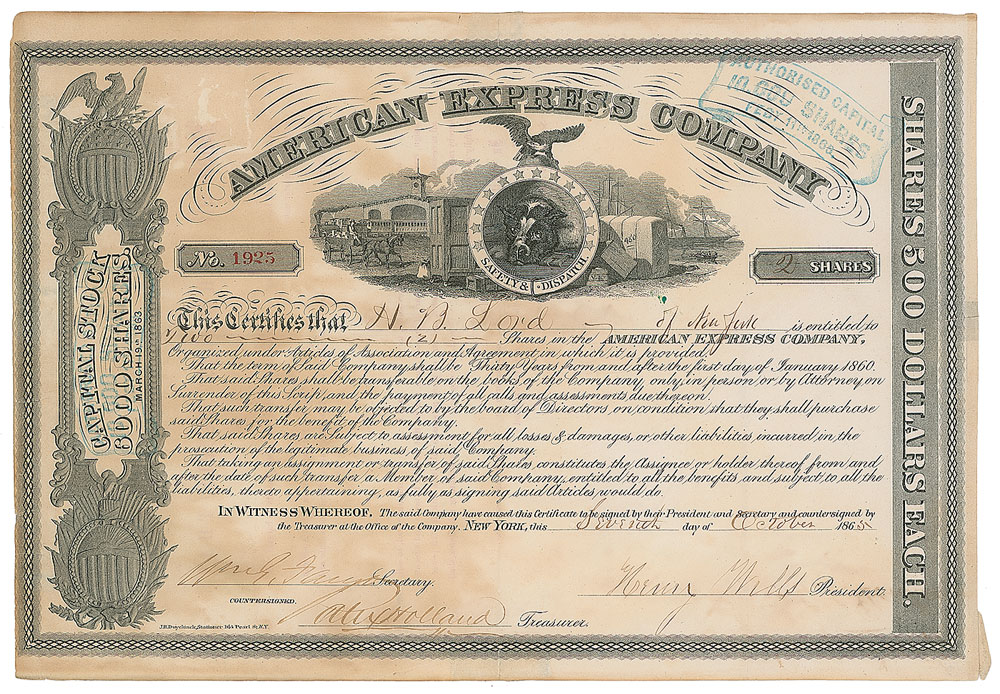 AMERICAN EXPRESS COMPANY
AUTHORISED CAPITAL
SHARES
SAFETY & DISPATCH
No. 1925
2 SHARES
CAPITAL STOCK
8000 SHARES
MARCH 19th 1863.
SHARES 500 DOLLARS EACH.
This Certifies that H. B. Lord of New York is entitled to
(2) Shares in the AMERICAN EXPRESS COMPANY,
Organized under Articles of Association and Agreement in which it is provided,
That the term of Said Company shall be Thirty Years from and after the first day of January 1860.
That said Shares shall be transferable on the books of the Company, only, in person or by Attorney on
Surrender of this Scrip, and the payment of all calls and assessments due thereon.
That such transfer may be objected to by the board of Directors, on condition that they shall purchase
said Shares for the benefit of the Company.
That said Shares are Subject to assessment for all losses & damages, or other liabilities, incurred in the
prosecution of the legitimate business of said Company.
That taking an assignment or transfer of said Shares constitutes the Assignee or holder thereof from and
after the date of such transfer a Member of said Company, entitled to all the benefits, and subject to all the
liabilities, thereto appertaining, as fully as signing said Articles would do.
IN WITNESS WHEREOF, The said Company have caused this Certificate to be signed by their President and Secretary and countersigned by
the Treasurer at the Office of the Company. NEW YORK, this Seventh day of October 1865
Secretary.
Henry Wells President.
COUNTERSIGNED.
Holland Treasurer.
J.H. Duyckinck, Stationer 164 Pearl St. N.Y.